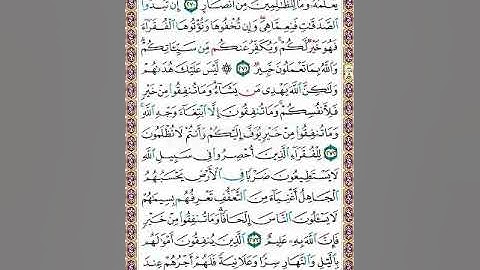 يَعْلَمُهُ وَمَا لِلظَّٰلِمِينَ مِنْ أَنصَارٍ ٢٧٠ إِن تُبْدُوا۟
ٱلصَّدَقَٰتِ فَنِعِمَّا هِىَ وَإِن تُخْفُوهَا وَتُؤْتُوهَا ٱلْفُقَرَآءَ
فَهُوَ خَيْرٌ لَّكُمْ وَيُكَفِّرُ عَنكُم مِّن سَيِّـَٔاتِكُمْ
وَٱللَّهُ بِمَا تَعْمَلُونَ خَبِيرٌ ٢٧١ ۞ لَّيْسَ عَلَيْكَ هُدَىٰهُمْ
وَلَٰكِنَّ ٱللَّهَ يَهْدِى مَن يَشَآءُ وَمَا تُنفِقُوا۟ مِنْ خَيْرٍ
فَلِأَنفُسِكُمْ وَمَا تُنفِقُونَ إِلَّا ٱبْتِغَآءَ وَجْهِ ٱللَّهِ
وَمَا تُنفِقُوا۟ مِنْ خَيْرٍ يُوَفَّ إِلَيْكُمْ وَأَنتُمْ لَا تُظْلَمُونَ
٢٧٢ لِلْفُقَرَآءِ ٱلَّذِينَ أُحْصِرُوا۟ فِى سَبِيلِ ٱللَّهِ
لَا يَسْتَطِيعُونَ ضَرْبًا فِى ٱلْأَرْضِ يَحْسَبُهُمُ
ٱلْجَاهِلُ أَغْنِيَآءَ مِنَ ٱلتَّعَفُّفِ تَعْرِفُهُم بِسِيمَٰهُمْ
لَا يَسْـَٔلُونَ ٱلنَّاسَ إِلْحَافًا وَمَا تُنفِقُوا۟ مِنْ خَيْرٍ
فَإِنَّ ٱللَّهَ بِهِۦ عَلِيمٌ ٢٧٣ ٱلَّذِينَ يُنفِقُونَ أَمْوَٰلَهُم
بِٱلَّيْلِ وَٱلنَّهَارِ سِرًّا وَعَلَانِيَةً فَلَهُمْ أَجْرُهُمْ عِندَ